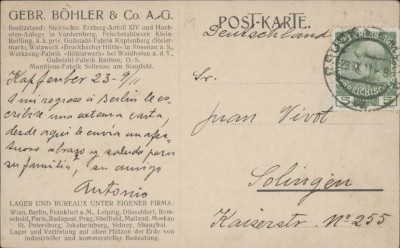 GEBR. BÖHLER & Co. A.-G.
Besitzstand: Steirische Erzberg-Anteil XIV und Hoch-
ofen-Anlage in Vordernberg, Frischstahlwerk Klein-
Reifling, k. k. priv. Gußstahl-Fabrik Kapfenberg (Steier-
mark), Walzwerk »Bruckbacher Hütte« in Rosenau a. S.,
Werkzeug-Fabrik »Böhlerwerk« bei Waidhofen a. d. Y.,
Gußstahl-Fabrik Ratibor, O.-S.
Munitions-Fabrik Sollenau am Steinfeld.
Kapfenber 23-9/11
A mi regreso á Berlin le es-
cribiré una extensa carta,
desde aquí le envia un afec-
tuoso abrazo y saludo para
su familia, su amigo
Antonio
LAGER UND BUREAUX UNTER EIGENER FIRMA:
Wien, Berlin, Frankfurt a. M., Leipzig, Düsseldorf, Rem-
scheid, Paris, Budapest, Prag, Sheffield, Mailand, Moskau
St. Petersburg, Jekaterinburg, Sidney, Shanghai.
Lager und Vertretung auf allen Plätzen der Erde von
industrieller und kommerzieller Bedeutung.
POST-KARTE.
Deutschland
Sr.
Juan Vivot
Solingen
Kaiserstr. Nº 255
5 5